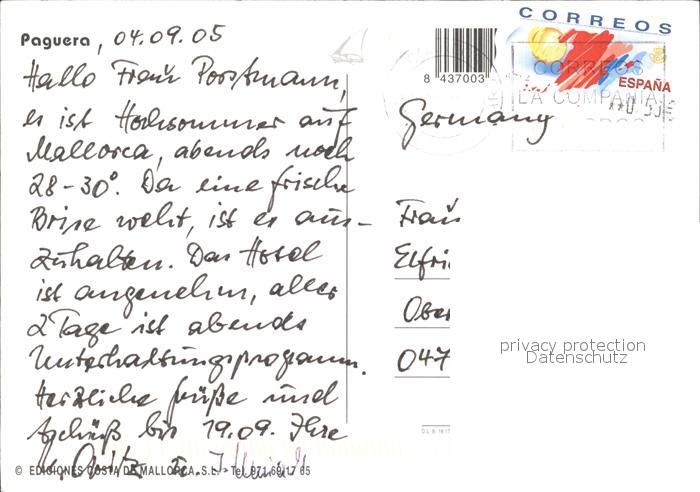 Paguera, 04.09.05
Hallo Frau Porstmann,
es ist Hochsommer auf
Mallorca, abends noch
28-30°. Da eine frische
Brise weht, ist es aus-
zuhalten. Das Hotel
ist angenehm, alle
2 Tage ist abends
Unterhaltungsprogramm.
Herzliche Grüße und
tschüß bis 19.09. Ihre
© EDICIONES COSTA DE MALLORCA, S.L. - Tel. 971 69 17 65
8 437003
CORREOS
ESPAÑA
CORREOS
LA COMPAÑIA
Germany
Frau
Elfri
Ober
047
privacy protection
Datenschutz